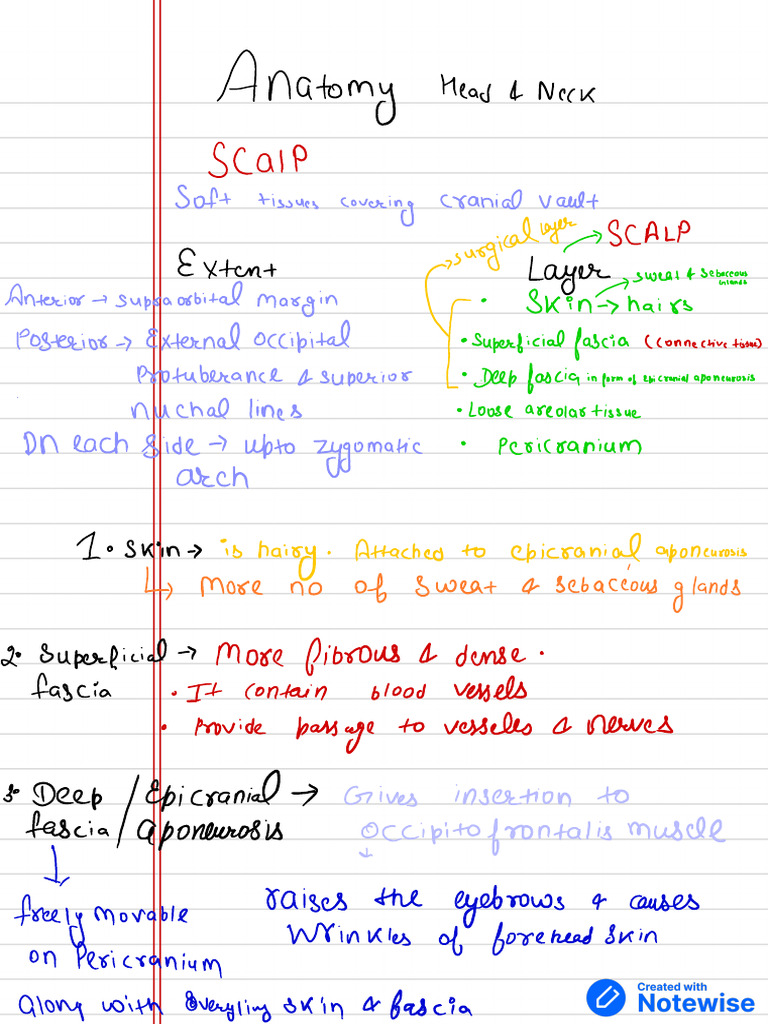 Anatomy Head & Neck
SCalP
Soft tissues covering cranial vault
Extent
Anterior → supraorbital margin
Posterior → External occipital
Protuberance & superior
nuchal lines
On each side → upto zygomatic
arch
surgical layer
SCALP
Layer
sweat & sebaceous
glands
• Skin → hairs
• Superficial fascia (connective tissue)
• Deep fascia in form of epicranial aponeurosis
• Loose areolar tissue
• Pericranium
1. Skin → is hairy. Attached to epicranial aponeurosis
↳ More no of sweat & sebaceous glands
2. Superficial → More fibrous & dense.
fascia • It contain blood vessels
• Provide passage to vesseles & nerves
3. Deep / Epicranial → Gives insertion to
fascia / aponeurosis occipitofrontalis muscle
↓
freely movable
on Pericranium
along with skin & fascia
raises the eyebrows & causes
Wrinkles of forehead skin
Created with
Notewise